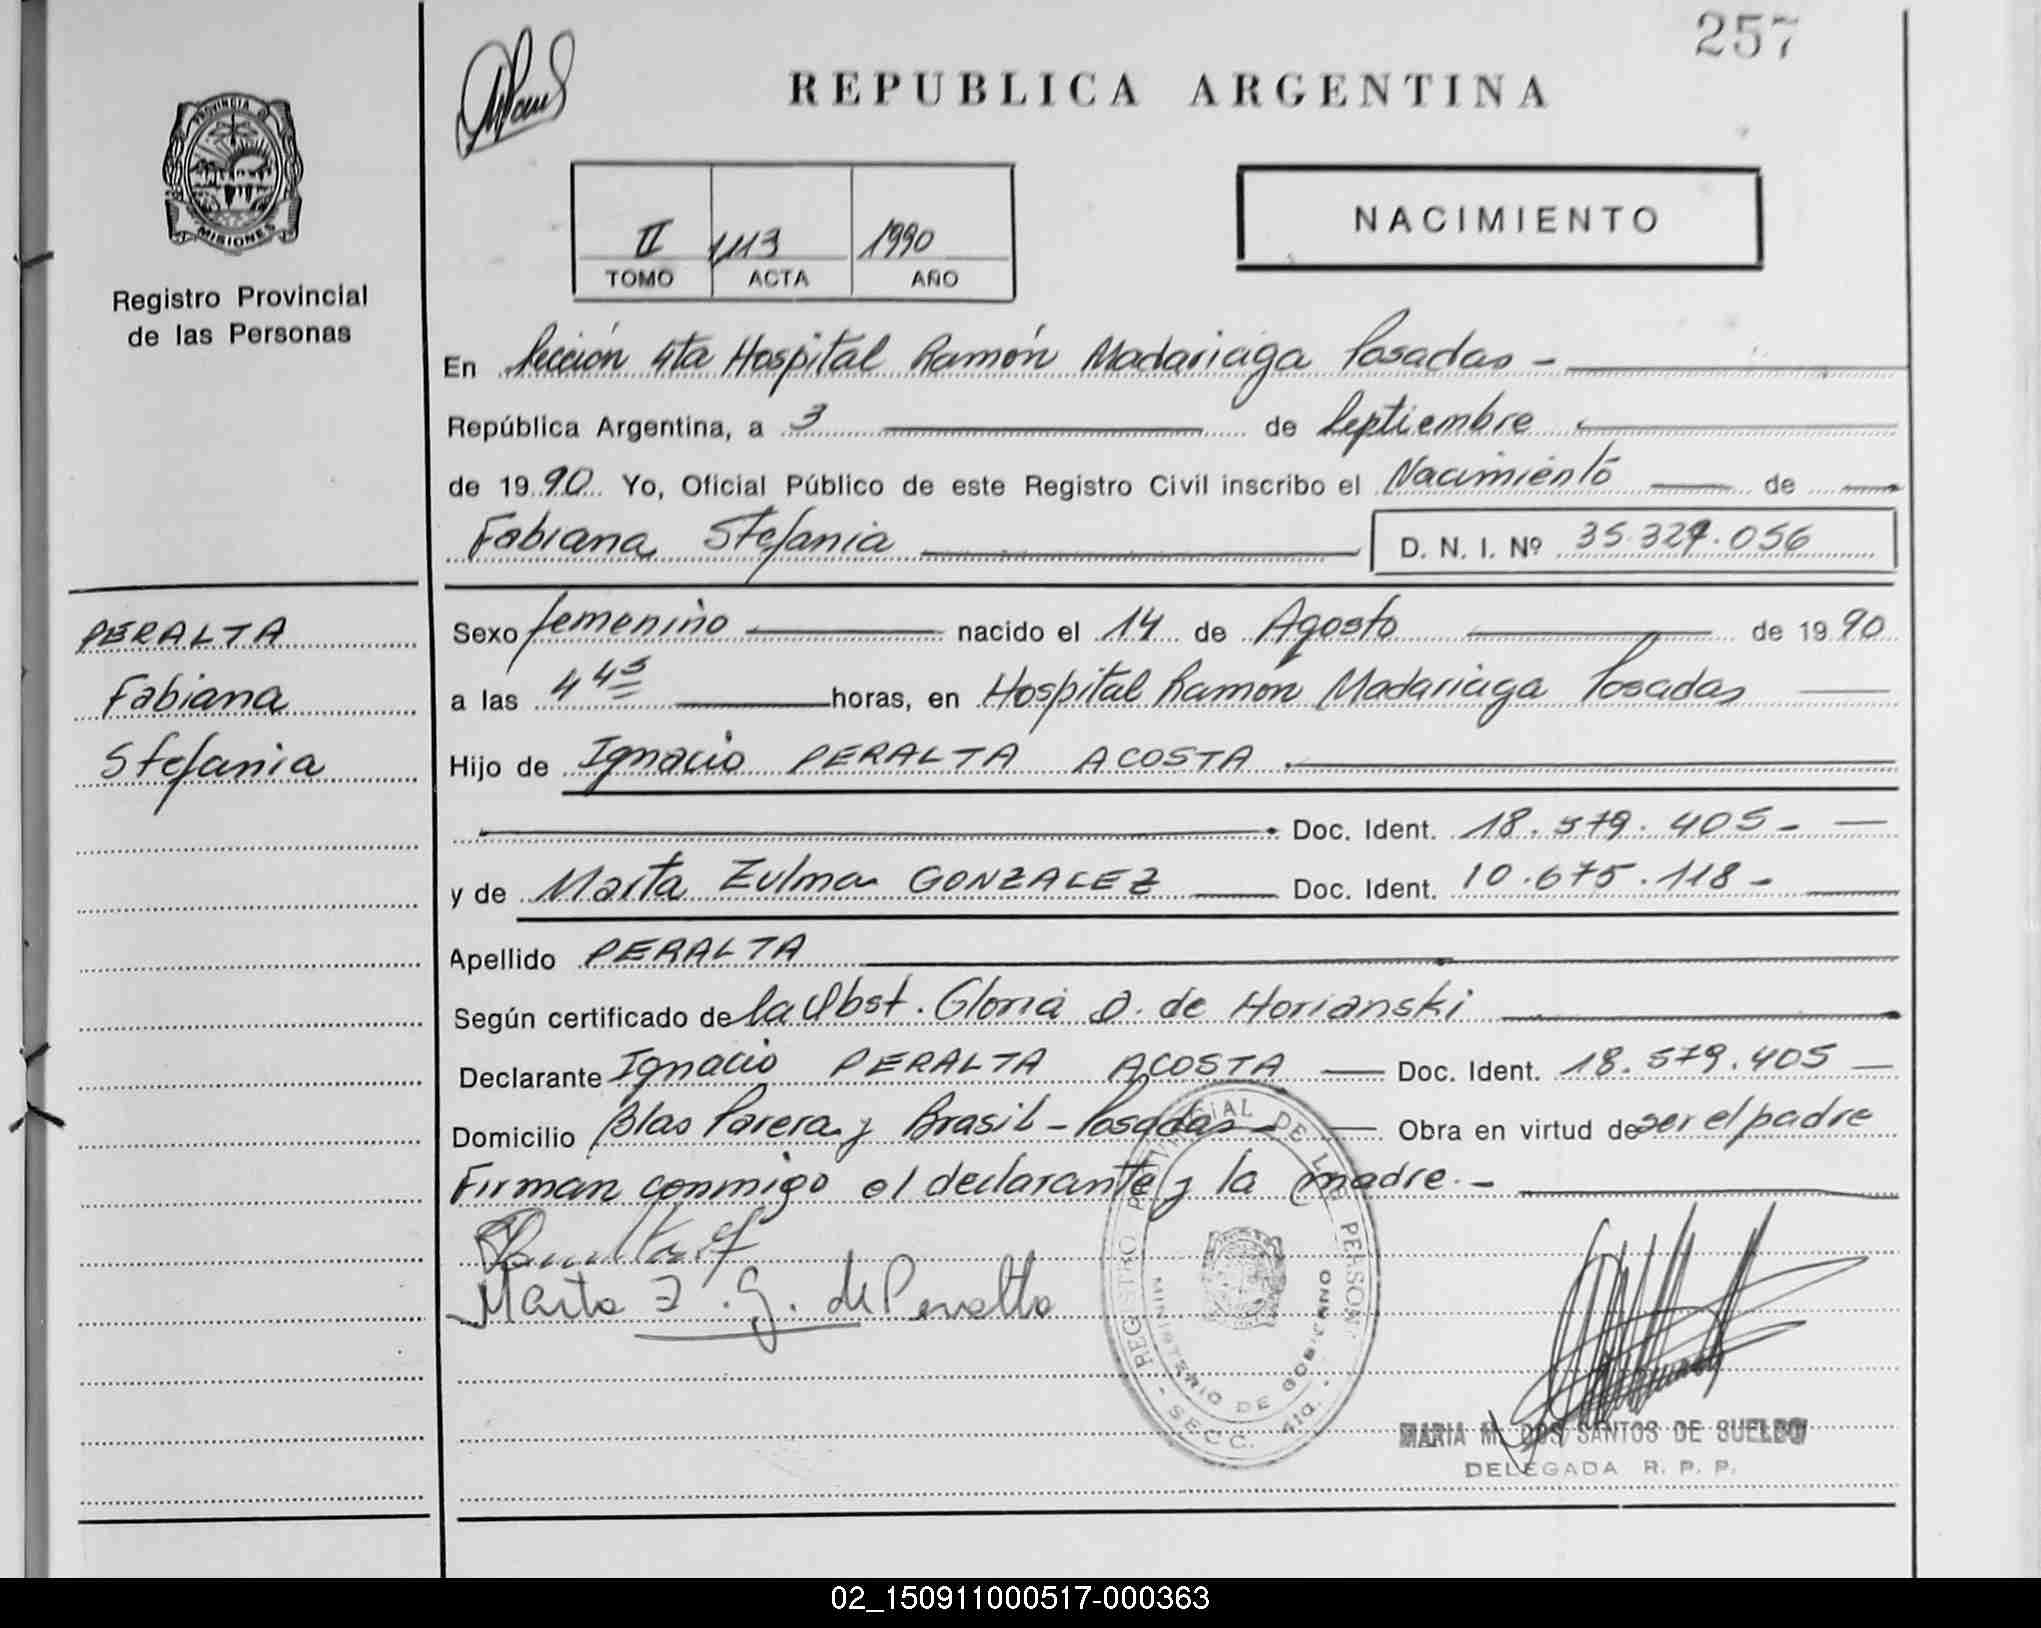 257
REPUBLICA ARGENTINA
PROVINCIA DE
MISIONES
Registro Provincial
de las Personas
II 1113 1990
TOMO ACTA AÑO
NACIMIENTO
En Sección 4ta Hospital Ramón Madariaga Posadas -
República Argentina, a 3 de Septiembre
de 1990 Yo, Oficial Público de este Registro Civil inscribo el Nacimiento de
Fabiana Stefania D. N. I. Nº 35.327.056
PERALTA
Fabiana
Stefania
Sexo femenino nacido el 14 de Agosto de 1990
a las 4 45 horas, en Hospital Ramon Madariaga Posadas
Hijo de Ignacio PERALTA ACOSTA
Doc. Ident. 18.579.405-
y de Marta Zulma GONZALEZ Doc. Ident. 10.675.118-
Apellido PERALTA
Según certificado de la Obst. Gloria D. de Horianski
Declarante Ignacio PERALTA ACOSTA Doc. Ident. 18.579.405
Domicilio Blas Parera y Brasil - Posadas - Obra en virtud de ser el padre
Firman conmigo el declarante y la madre.-
Marta Z. G. de Peralta
REGISTRO PROVINCIAL DE LAS PERSONAS
MINISTERIO DE GOBIERNO
- SECC. 4ta. -
MARIA M. DOS SANTOS DE SUELDO
DELEGADA R. P. P.
02_150911000517-000363